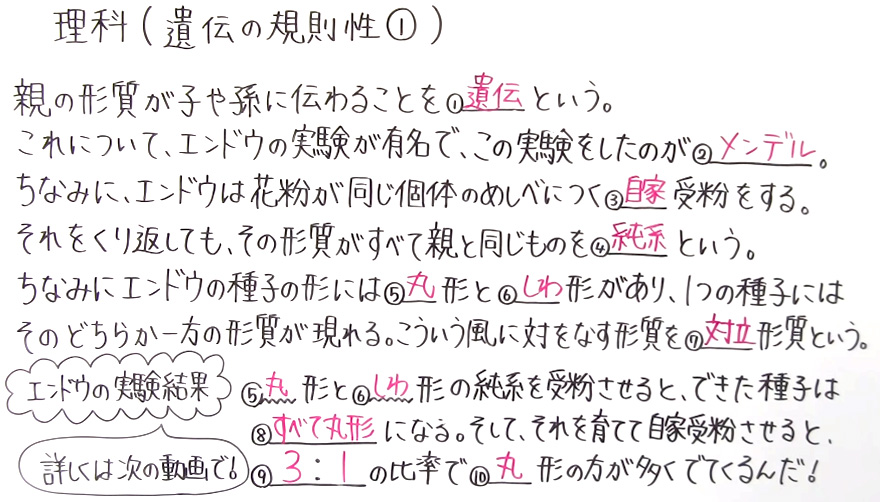 理科(遺伝の規則性①)
親の形質が子や孫に伝わることを①遺伝という。
これについて、エンドウの実験が有名で、この実験をしたのが②メンデル。
ちなみに、エンドウは花粉が同じ個体のめしべにつく③自家受粉をする。
それをくり返しても、その形質がすべて親と同じものを④純系という。
ちなみにエンドウの種子の形には⑤丸形と⑥しわ形があり、1つの種子には
そのどちらか一方の形質が現れる。こういう風に対をなす形質を⑦対立形質という。
エンドウの実験結果
⑤丸形と⑥しわ形の純系を受粉させると、できた種子は
⑧すべて丸形になる。そして、それを育てて自家受粉させると、
詳しくは次の動画で!
⑨3:1の比率で⑩丸形の方が多くでてくるんだ!